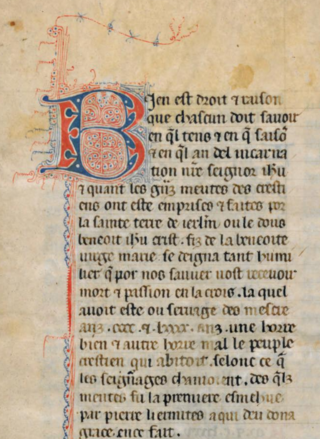 Bien est droit ⁊ raison
que chascun doit savoir
en q̃l tens ⁊ en q̃ saisõ
⁊ en q̃l an del incarna
tion nr̃e seignor ihũ
⁊ quant les gñz meutes des cresti
ens ont este emprises ⁊ faites por
la sainte terre de ierlm̃ ou le dous
beneoit ihũ crist. fiz de la beneoite
uirge marie. se deigna tant humi
lier q̃ por nos sauuer uost receuour
mort ⁊ passion en la crois. la quel
auoit este ou seruage des mescre
anz .cccc. ⁊. lxxx. anz. une horre
bien ⁊ autre horre mal le peuple
crestien qui abitoit. selonc ce q̃
les seignages chanioient. des q̃lz
meutes fu la premiere esmehue
par pierre lermites a qui deu dona
grace. ence fait.